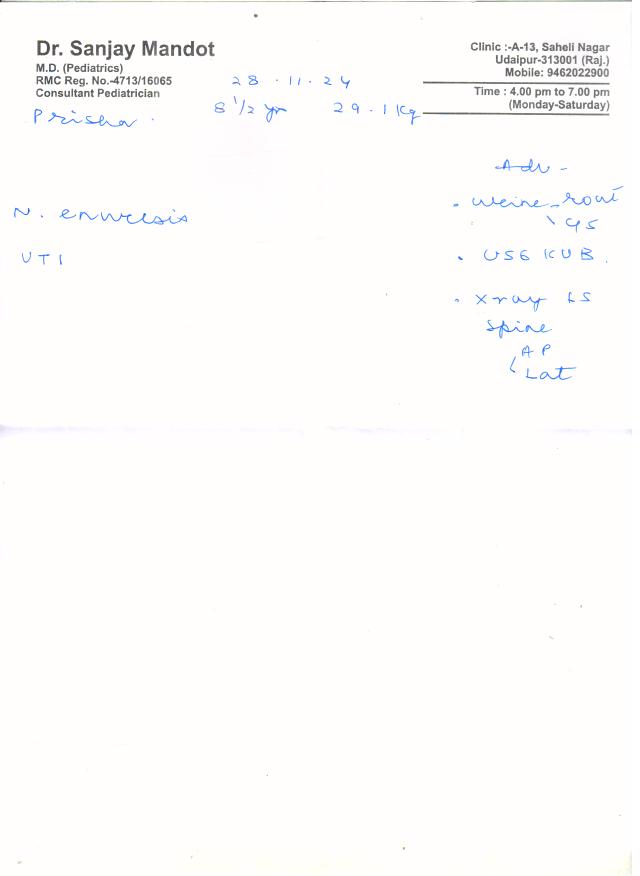 Dr. Sanjay Mandot
M.D. (Pediatrics)
RMC Reg. No.-4713/16065
Consultant Pediatrician
Clinic :-A-13, Saheli Nagar
Udaipur-313001 (Raj.)
Mobile: 9462022900
Time : 4.00 pm to 7.00 pm
(Monday-Saturday)
28 . 11 . 24
Prisha . 8 1/2 yr 29 . 1 Kg
Adv -
N. enuresis
UTI
. Urine rout
\ CS
. USG KUB .
. Xray LS
Spine
AP
Lat